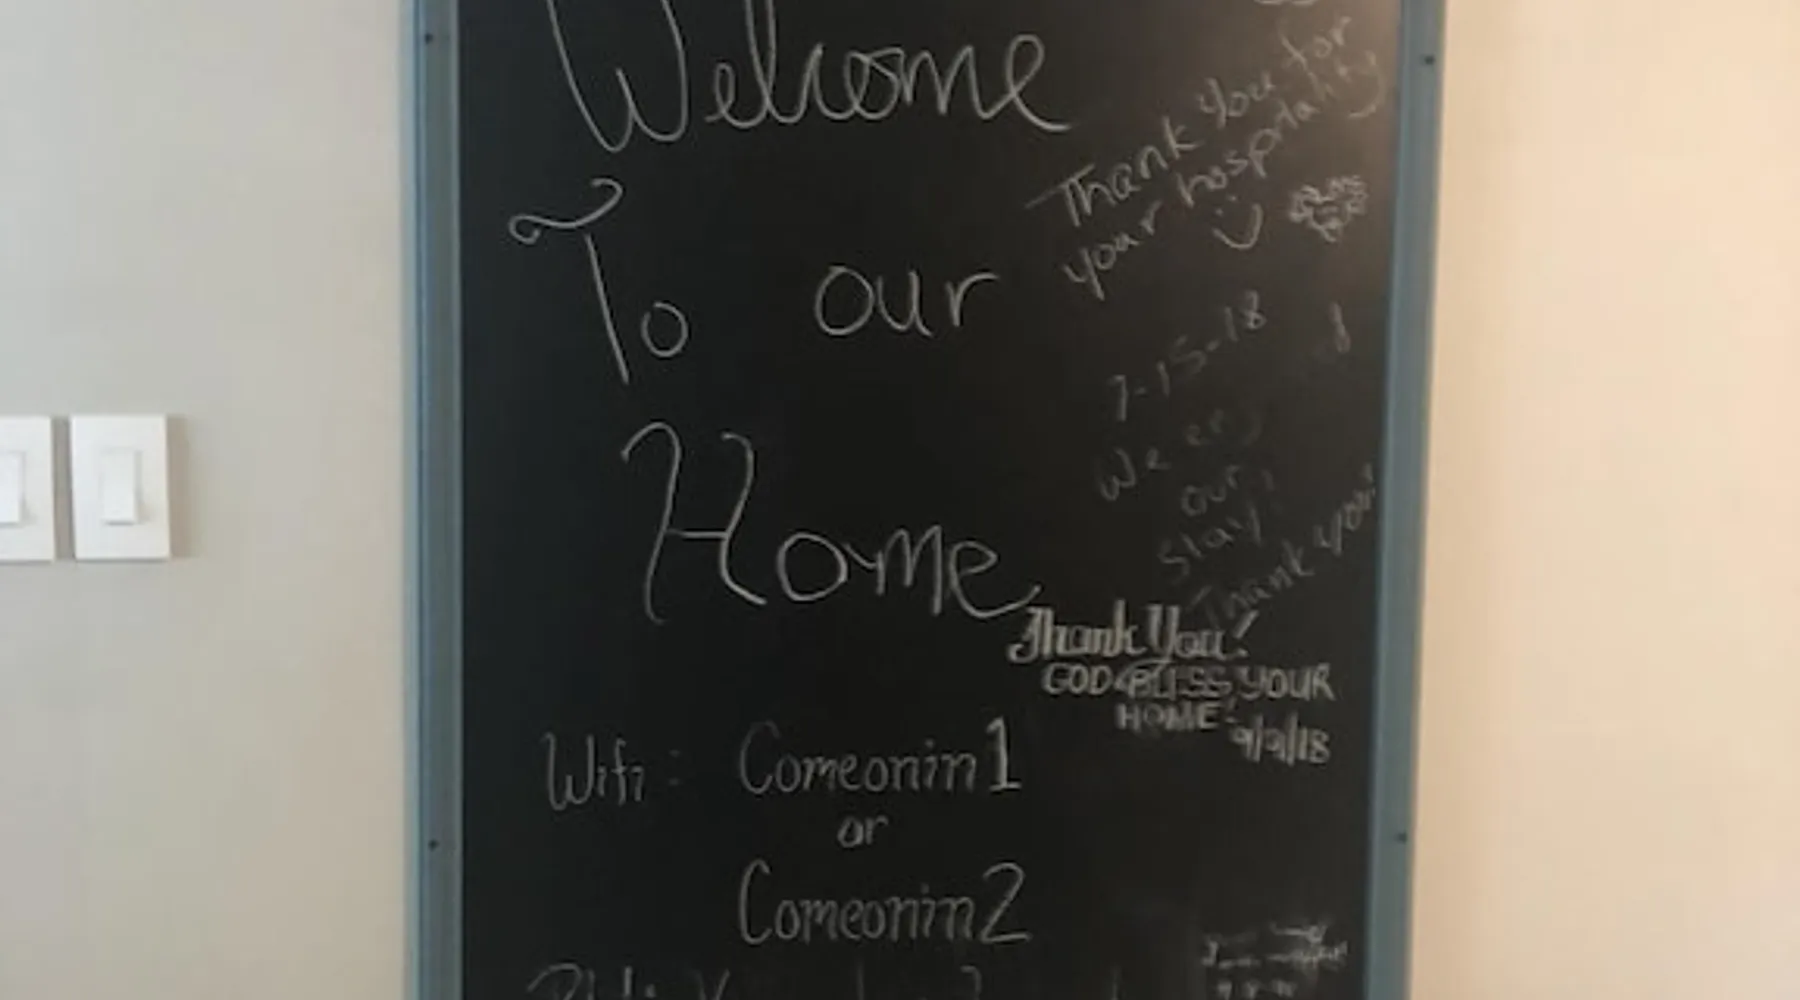 Welcome
To our
Home
Thank you for
your hospitality
7-15-18
We
our
stay!
Thank you!
Thank You!
GOD BLESS YOUR
HOME!
9/9/18
Wifi: Comeonin1
or
Comeonin2